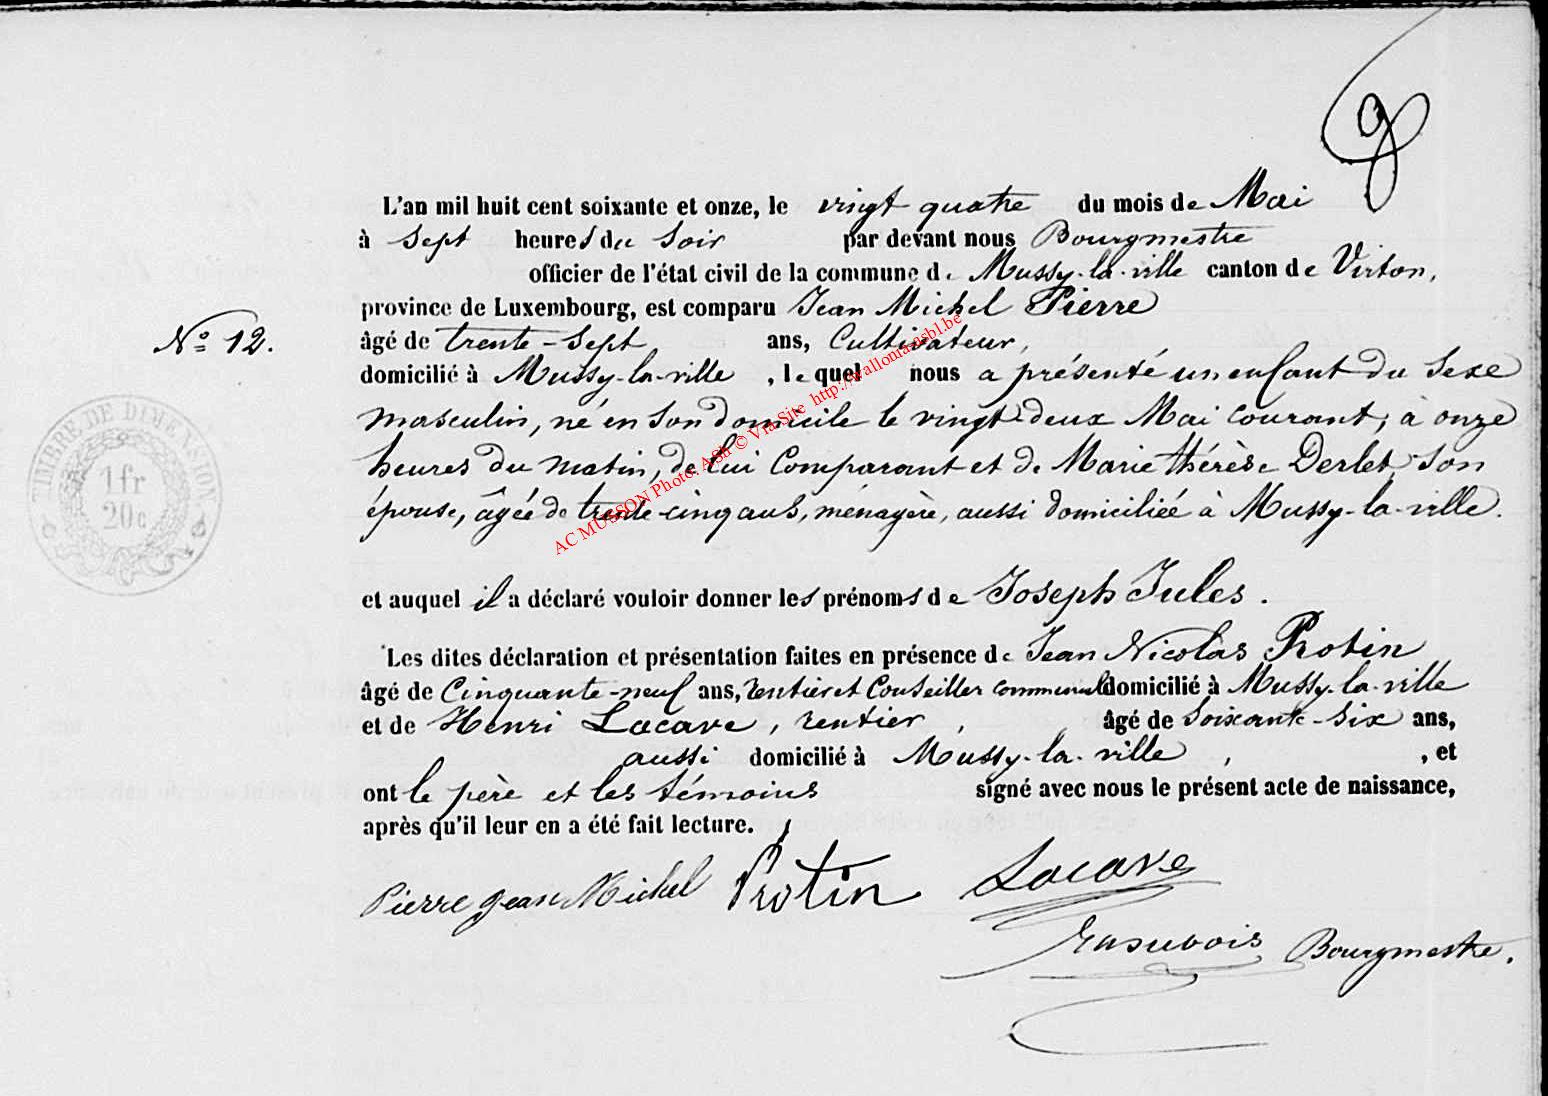 9
L'an mil huit cent soixante et onze, le vingt quatre du mois de Mai
à Sept heures du Soir par devant nous Bourgmestre
officier de l'état civil de la commune de Mussy-la-ville canton de Virton,
province de Luxembourg, est comparu Jean Michel Pierre
N° 12.
âgé de trente-Sept ans, Cultivateur,
domicilié à Mussy-la-ville, lequel nous a présenté un enfant du Sexe
masculin, né en Son domicile le vingt deux Mai courant, à onze
heures du matin, de lui Comparant et de Marie thérèse Derlet, Son
épouse, âgée de trente-cinq ans, ménagère, aussi domiciliée à Mussy-la-ville.
TIMBRE DE DIMENSION
1 fr
20 c
AC MUSSON Photo. ASh © Via Site http://wallonia.asbl.be
et auquel il a déclaré vouloir donner les prénoms de Joseph Jules.
Les dites déclaration et présentation faites en présence de Jean Nicolas Protin
âgé de Cinquante-neuf ans, rentier et Conseiller communal domicilié à Mussy-la-ville
et de Henri Lacave, rentier, âgé de Soixante-Six ans,
aussi domicilié à Mussy-la-ville, , et
ont le père et les témoins signé avec nous le présent acte de naissance,
après qu'il leur en a été fait lecture.
Pierre Jean Michel Protin Lacave
Bourgmestre.